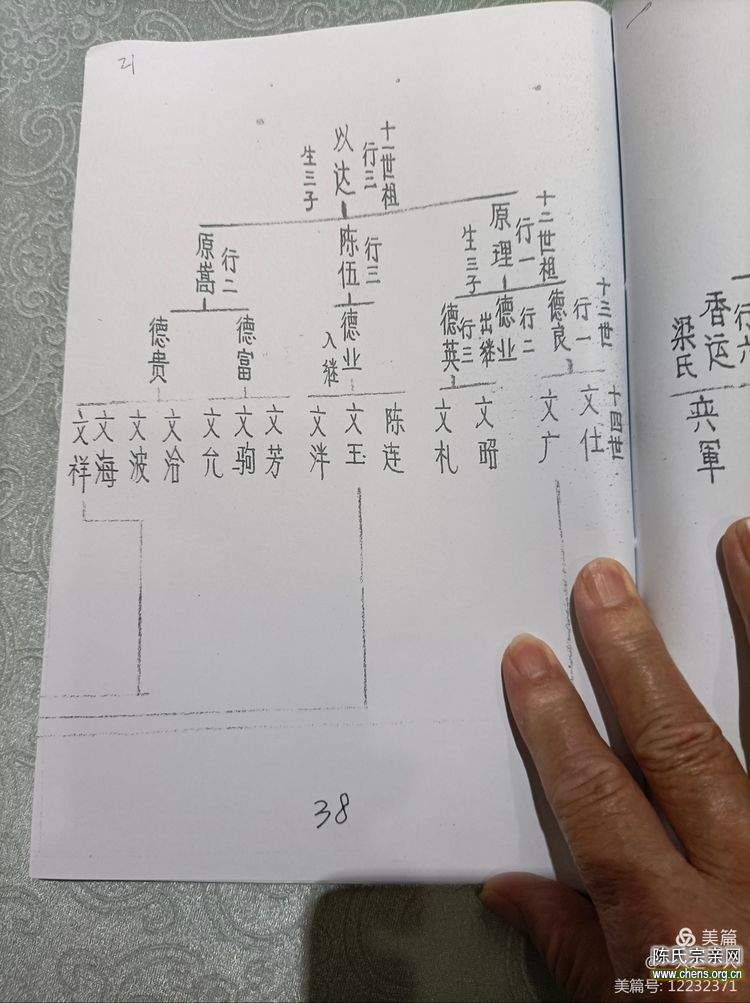 21
十一世祖
行三
以达
生三子
十二世祖
行一
原理
生三子
行三
陈伍
行二
原嵩
十三世
行一
德良
行二
德业
出继
行三
德英
德业
入继
德富
德贵
十四世
文仕
文广
文昭
文札
陈连
文玉
文洋
文芳
文驹
文允
文洽
文波
文海
文祥
38
一行六
香运
梁氏
美篇
陈氏宗亲网
www.chens.org.cn
美篇号: 12232371